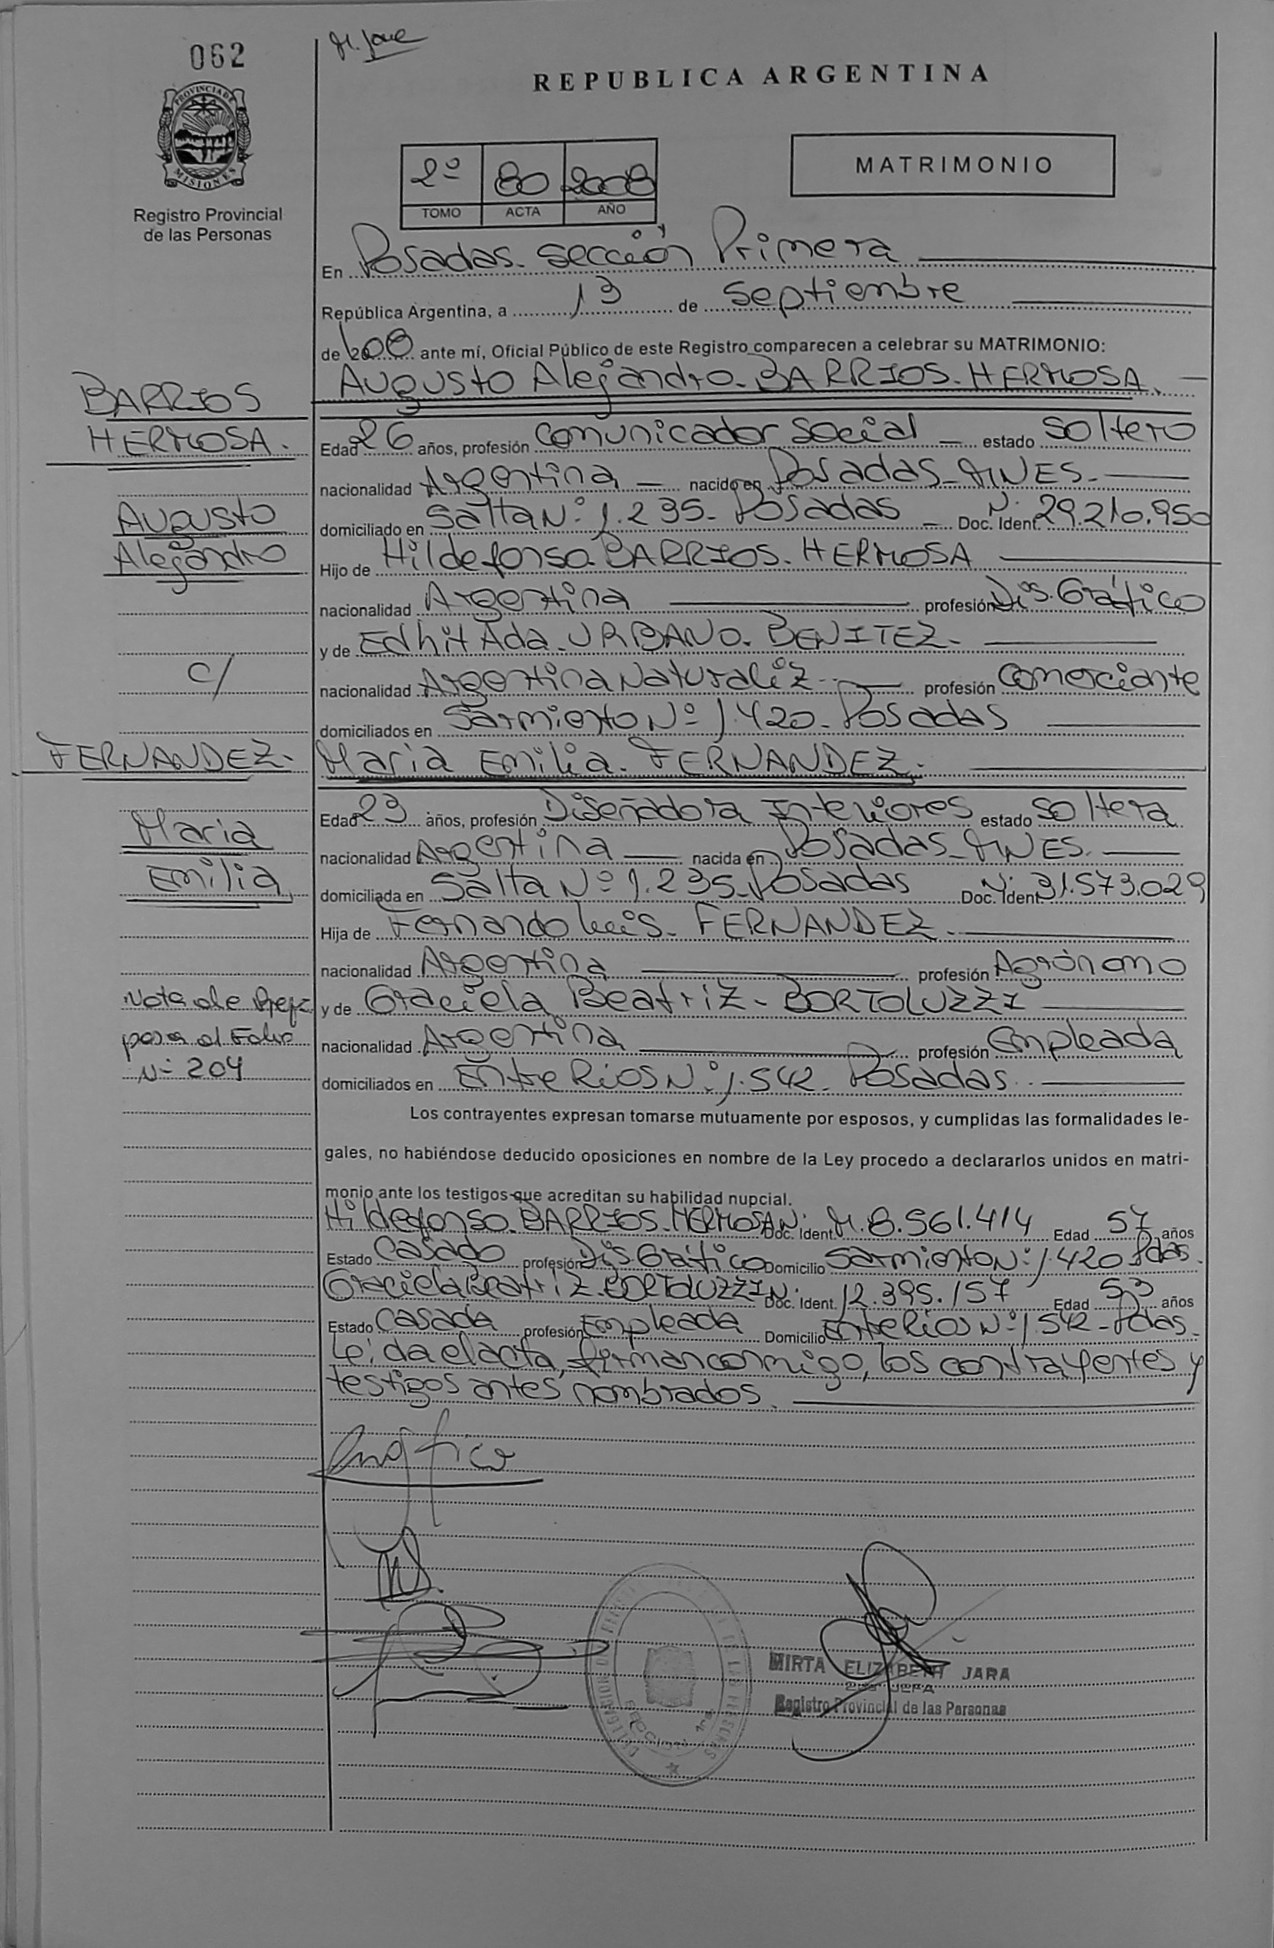 062
PROVINCIA DE
MISIONES
Registro Provincial
de las Personas
REPUBLICA ARGENTINA
2º 80 2008
TOMO ACTA AÑO
MATRIMONIO
En Posadas. Sección Primera
República Argentina, a 13 de Septiembre
de 2008 ante mí, Oficial Público de este Registro comparecen a celebrar su MATRIMONIO:
Augusto Alejandro. BARRIOS. HERMOSA.
BARRIOS
HERMOSA.
Augusto
Alejandro
c/
FERNANDEZ.
Maria
Emilia
Nota de
pasa al Folio
Nº 204
Edad 26 años, profesión Comunicador Social estado Soltero
nacionalidad Argentina nacido en Posadas_MNES.
domiciliado en Salta Nº 1.235_ Posadas Doc. Ident. Nº 29.210.950
Hijo de Hildefonso. BARRIOS. HERMOSA
nacionalidad Argentina profesión Dis. Gráfico
y de Edhit Ada. URBANO. BENITEZ.
nacionalidad Argentina Naturaliz. profesión Comerciante
domiciliados en Sarmiento Nº 1.420_ Posadas
Maria Emilia. FERNANDEZ.
Edad 23 años, profesión Diseñadora Interiores estado Soltera
nacionalidad Argentina nacida en Posadas_MNES.
domiciliada en Salta Nº 1.235_Posadas Doc. Ident. Nº 31.573.029
Hija de Fernando Luis. FERNANDEZ.
nacionalidad Argentina profesión Agrónomo
y de Graciela Beatriz. BORTOLUZZI
nacionalidad Argentina profesión Empleada
domiciliados en Entre Rios Nº 1.542_ Posadas.
Los contrayentes expresan tomarse mutuamente por esposos, y cumplidas las formalidades le-
gales, no habiéndose deducido oposiciones en nombre de la Ley procedo a declararlos unidos en matri-
monio ante los testigos que acreditan su habilidad nupcial.
Hildefonso. BARRIOS. HERMOSA Doc. Ident. Nº M. 8.561.414 Edad 57 años
Estado Casado profesión Dis Gráfico Domicilio Sarmiento Nº 1.420 Pdas.
Graciela Beatriz. BORTOLUZZI Doc. Ident. Nº 12.395.157 Edad 53 años
Estado Casada profesión Empleada Domicilio Entre Rios Nº 1.542_Pdas.
Leída el acta, firman conmigo, los contrayentes y
testigos antes nombrados.
MIRTA ELIZABETH JARA
JEFA
Registro Provincial de las Personas